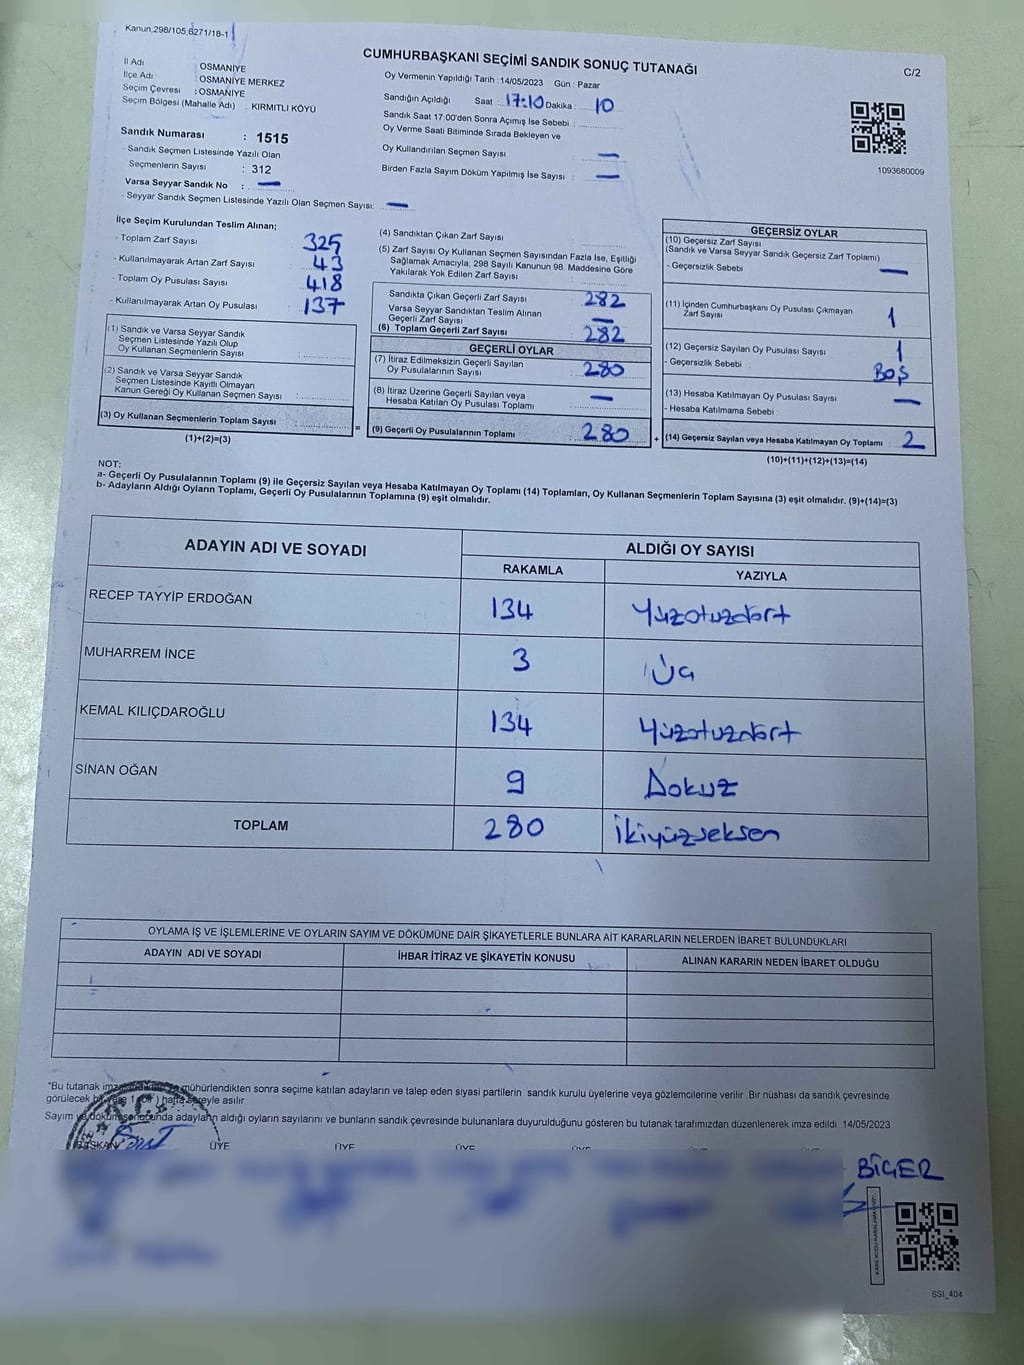 Kanun,298/105,6271/18-1
CUMHURBAŞKANI SEÇİMİ SANDIK SONUÇ TUTANAĞI
C/2
İl Adı OSMANİYE
İlçe Adı OSMANİYE MERKEZ
Seçim Çevresi : OSMANİYE
Seçim Bölgesi (Mahalle Adı) . KIRMITLI KÖYÜ
Oy Vermenin Yapıldığı Tarih : 14/05/2023 Gün : Pazar
Sandığın Açıldığı Saat : 17:10 Dakika : 10
Sandık Saat 17.00'den Sonra Açımış İse Sebebi :
Oy Verme Saati Bitiminde Sırada Bekleyen ve
Oy Kullandırılan Seçmen Sayısı : —
Birden Fazla Sayım Döküm Yapılmış İse Sayısı : —
1093680009
Sandık Numarası : 1515
Sandık Seçmen Listesinde Yazılı Olan
Seçmenlerin Sayısı : 312
Varsa Seyyar Sandık No : —
- Seyyar Sandık Seçmen Listesinde Yazılı Olan Seçmen Sayısı: —
İlçe Seçim Kurulundan Teslim Alınan;
- Toplam Zarf Sayısı 325
- Kullanılmayarak Artan Zarf Sayısı : 43
- Toplam Oy Pusulası Sayısı : 418
- Kullanılmayarak Artan Oy Pusulası : 137
(1) Sandık ve Varsa Seyyar Sandık
Seçmen Listesinde Yazılı Olup
Oy Kullanan Seçmenlerin Sayısı :
(2) Sandık ve Varsa Seyyar Sandık
Seçmen Listesinde Kayıtlı Olmayan
Kanun Gereği Oy Kullanan Seçmen Sayısı :
(3) Oy Kullanan Seçmenlerin Toplam Sayısı :
(1)+(2)=(3)
(4) Sandıktan Çıkan Zarf Sayısı
(5) Zarf Sayısı Oy Kullanan Seçmen Sayısından Fazla İse, Eşitliği
Sağlamak Amacıyla, 298 Sayılı Kanunun 98. Maddesine Göre
Yakılarak Yok Edilen Zarf Sayısı :
Sandıkta Çıkan Geçerli Zarf Sayısı : 282
Varsa Seyyar Sandıktan Teslim Alınan
Geçerli Zarf Sayısı : —
(6) Toplam Geçerli Zarf Sayısı : 282
GEÇERLİ OYLAR
(7) İtiraz Edilmeksizin Geçerli Sayılan
Oy Pusulalarının Sayısı : 280
(8) İtiraz Üzerine Geçerli Sayılan veya
Hesaba Katılan Oy Pusulası Toplamı : —
= (9) Geçerli Oy Pusulalarının Toplamı : 280
GEÇERSİZ OYLAR
(10) Geçersiz Zarf Sayısı
(Sandık ve Varsa Seyyar Sandık Geçersiz Zarf Toplamı)
- Geçersizlik Sebebi : —
(11) İçinden Cumhurbaşkanı Oy Pusulası Çıkmayan
Zarf Sayısı : 1
(12) Geçersiz Sayılan Oy Pusulası Sayısı : 1
- Geçersizlik Sebebi : BOŞ
(13) Hesaba Katılmayan Oy Pusulası Sayısı : —
- Hesaba Katılmama Sebebi
+ (14) Geçersiz Sayılan veya Hesaba Katılmayan Oy Toplamı : 2
(10)+(11)+(12)+(13)=(14)
NOT:
a- Geçerli Oy Pusulalarının Toplamı (9) ile Geçersiz Sayılan veya Hesaba Katılmayan Oy Toplamı (14) Toplamları, Oy Kullanan Seçmenlerin Toplam Sayısına (3) eşit olmalıdır. (9)+(14)=(3)
b- Adayların Aldığı Oyların Toplamı, Geçerli Oy Pusulalarının Toplamına (9) eşit olmalıdır.
ADAYIN ADI VE SOYADI
ALDIĞI OY SAYISI
RAKAMLA YAZIYLA
RECEP TAYYİP ERDOĞAN 134 Yüzotuzdört
MUHARREM İNCE 3 Üç
KEMAL KILIÇDAROĞLU 134 Yüzotuzdört
SİNAN OĞAN 9 Dokuz
TOPLAM 280 İkiyüzseksen
OYLAMA İŞ VE İŞLEMLERİNE VE OYLARIN SAYIM VE DÖKÜMÜNE DAİR ŞİKAYETLERLE BUNLARA AİT KARARLARIN NELERDEN İBARET BULUNDUKLARI
ADAYIN ADI VE SOYADI İHBAR İTİRAZ VE ŞİKAYETİN KONUSU ALINAN KARARIN NEDEN İBARET OLDUĞU
*Bu tutanak mühürlendikten sonra seçime katılan adayların ve talep eden siyasi partilerin sandık kurulu üyelerine veya gözlemcilerine verilir. Bir nüshası da sandık çevresinde
görülecek hafta süreyle asılır.
Sayım ve dökümü sonucunda adayların aldığı oyların sayılarını ve bunların sandık çevresinde bulunanlara duyurulduğunu gösteren bu tutanak tarafımızdan düzenlenerek imza edildi. 14/05/2023
BAŞKAN ÜYE ÜYE ÜYE ÜYE ÜYE
BİÇER
SSI_404